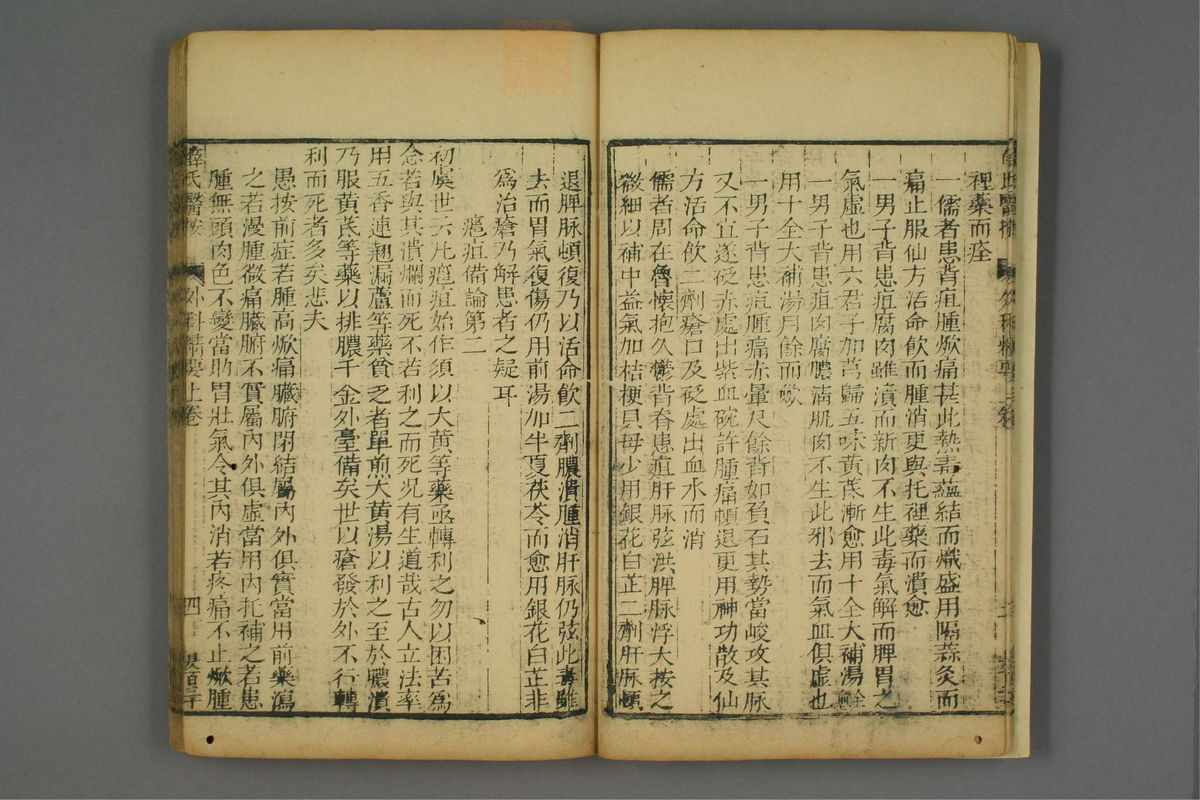 裡藥而痊
一儒者患背疽腫焮痛甚此熱毒蘊結而熾盛用隔蒜灸而
痛止服仙方活命飲而腫消更與托裡藥而潰愈
一男子背患疽腐肉雖潰而新肉不生此毒氣解而脾胃之
氣虛也用六君子加芎歸五味黃芪漸愈用十全大補湯全愈
一男子背患疽肉腐膿清肌肉不生此邪去而氣血俱虛也
用十全大補湯月餘而歛
一男子背患疽腫痛赤暈尺餘背如負石其勢當峻攻其脉
又不宜遂砭赤處出紫血碗許腫痛頓退更用神功散及仙
方活命飲二劑瘡口及砭處出血水而消
儒者周在魯懷抱久鬱背脊患疽肝脉弦洪脾脉浮大按之
微細以補中益氣加桔梗貝母少用銀花白芷二劑肝脉頓
退脾脉頓復乃以活命飲二劑膿潰腫消肝脉仍弦此毒雖
去而胃氣復傷仍用前湯加半夏茯苓而愈用銀花白芷非
為治瘡乃解患者之疑耳
瘡疽備論第二
初虞世云凡癰疽始作須以大黃等藥亟轉利之勿以困苦為
念若與其潰爛而死不若利之而死况有生道哉古人立法率
用五香連翹漏蘆等藥貧乏者單煎大黃湯以利之至於膿潰
乃服黃芪等藥以排膿千金外臺備矣世以瘡發於外不行轉
利而死者多矣悲夫
愚按前症若腫高焮痛臟腑閉結屬內外俱實當用前藥瀉
之若漫腫微痛臟腑不實屬內外俱虛當用內托補之若患
腫無頭肉色不變當助胃壯氣令其內消若疼痛不止焮腫
薛氏醫按
外科精要上卷
四